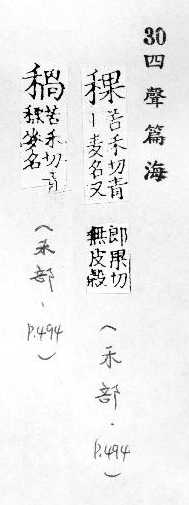 30四聲篇海
稞苦禾切青丨麦名又郎果切無皮穀(禾部.P.494)
稇苦禾切青稞麥名(禾部.P.494)